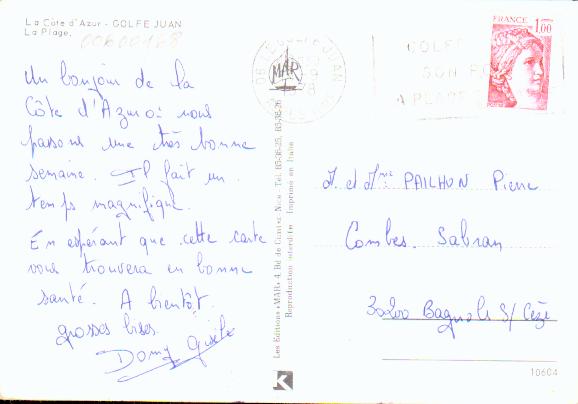 La Côte d'Azur - GOLFE JUAN
La Plage.
00600168
Un bonjour de la
Côte d'Azur où nous
passons une très bonne
semaine. Il fait un
temps magnifique.
En espérant que cette carte
vous trouvera en bonne
santé. A bientôt.
grosses bises.
Domy Gisèle
Les Editions «MAR» 4, Bd de Cimiez, Nice - Tél. 85-36-25, 85-36-26
Reproduction interdite Imprimé en Italie
MAR
K
GOLFE JUAN
GOLFE
SON
PLAGE
FRANCE
1,00
M. et Mme PAILHON Pierre
Combes. Sabran
30200 Bagnols S/ Cèze
10604